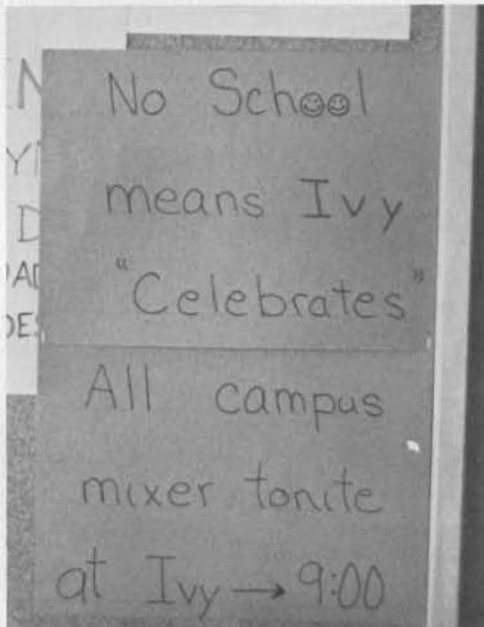 No School
means Ivy
"Celebrates"
All campus
mixer tonite
at Ivy → 9:00